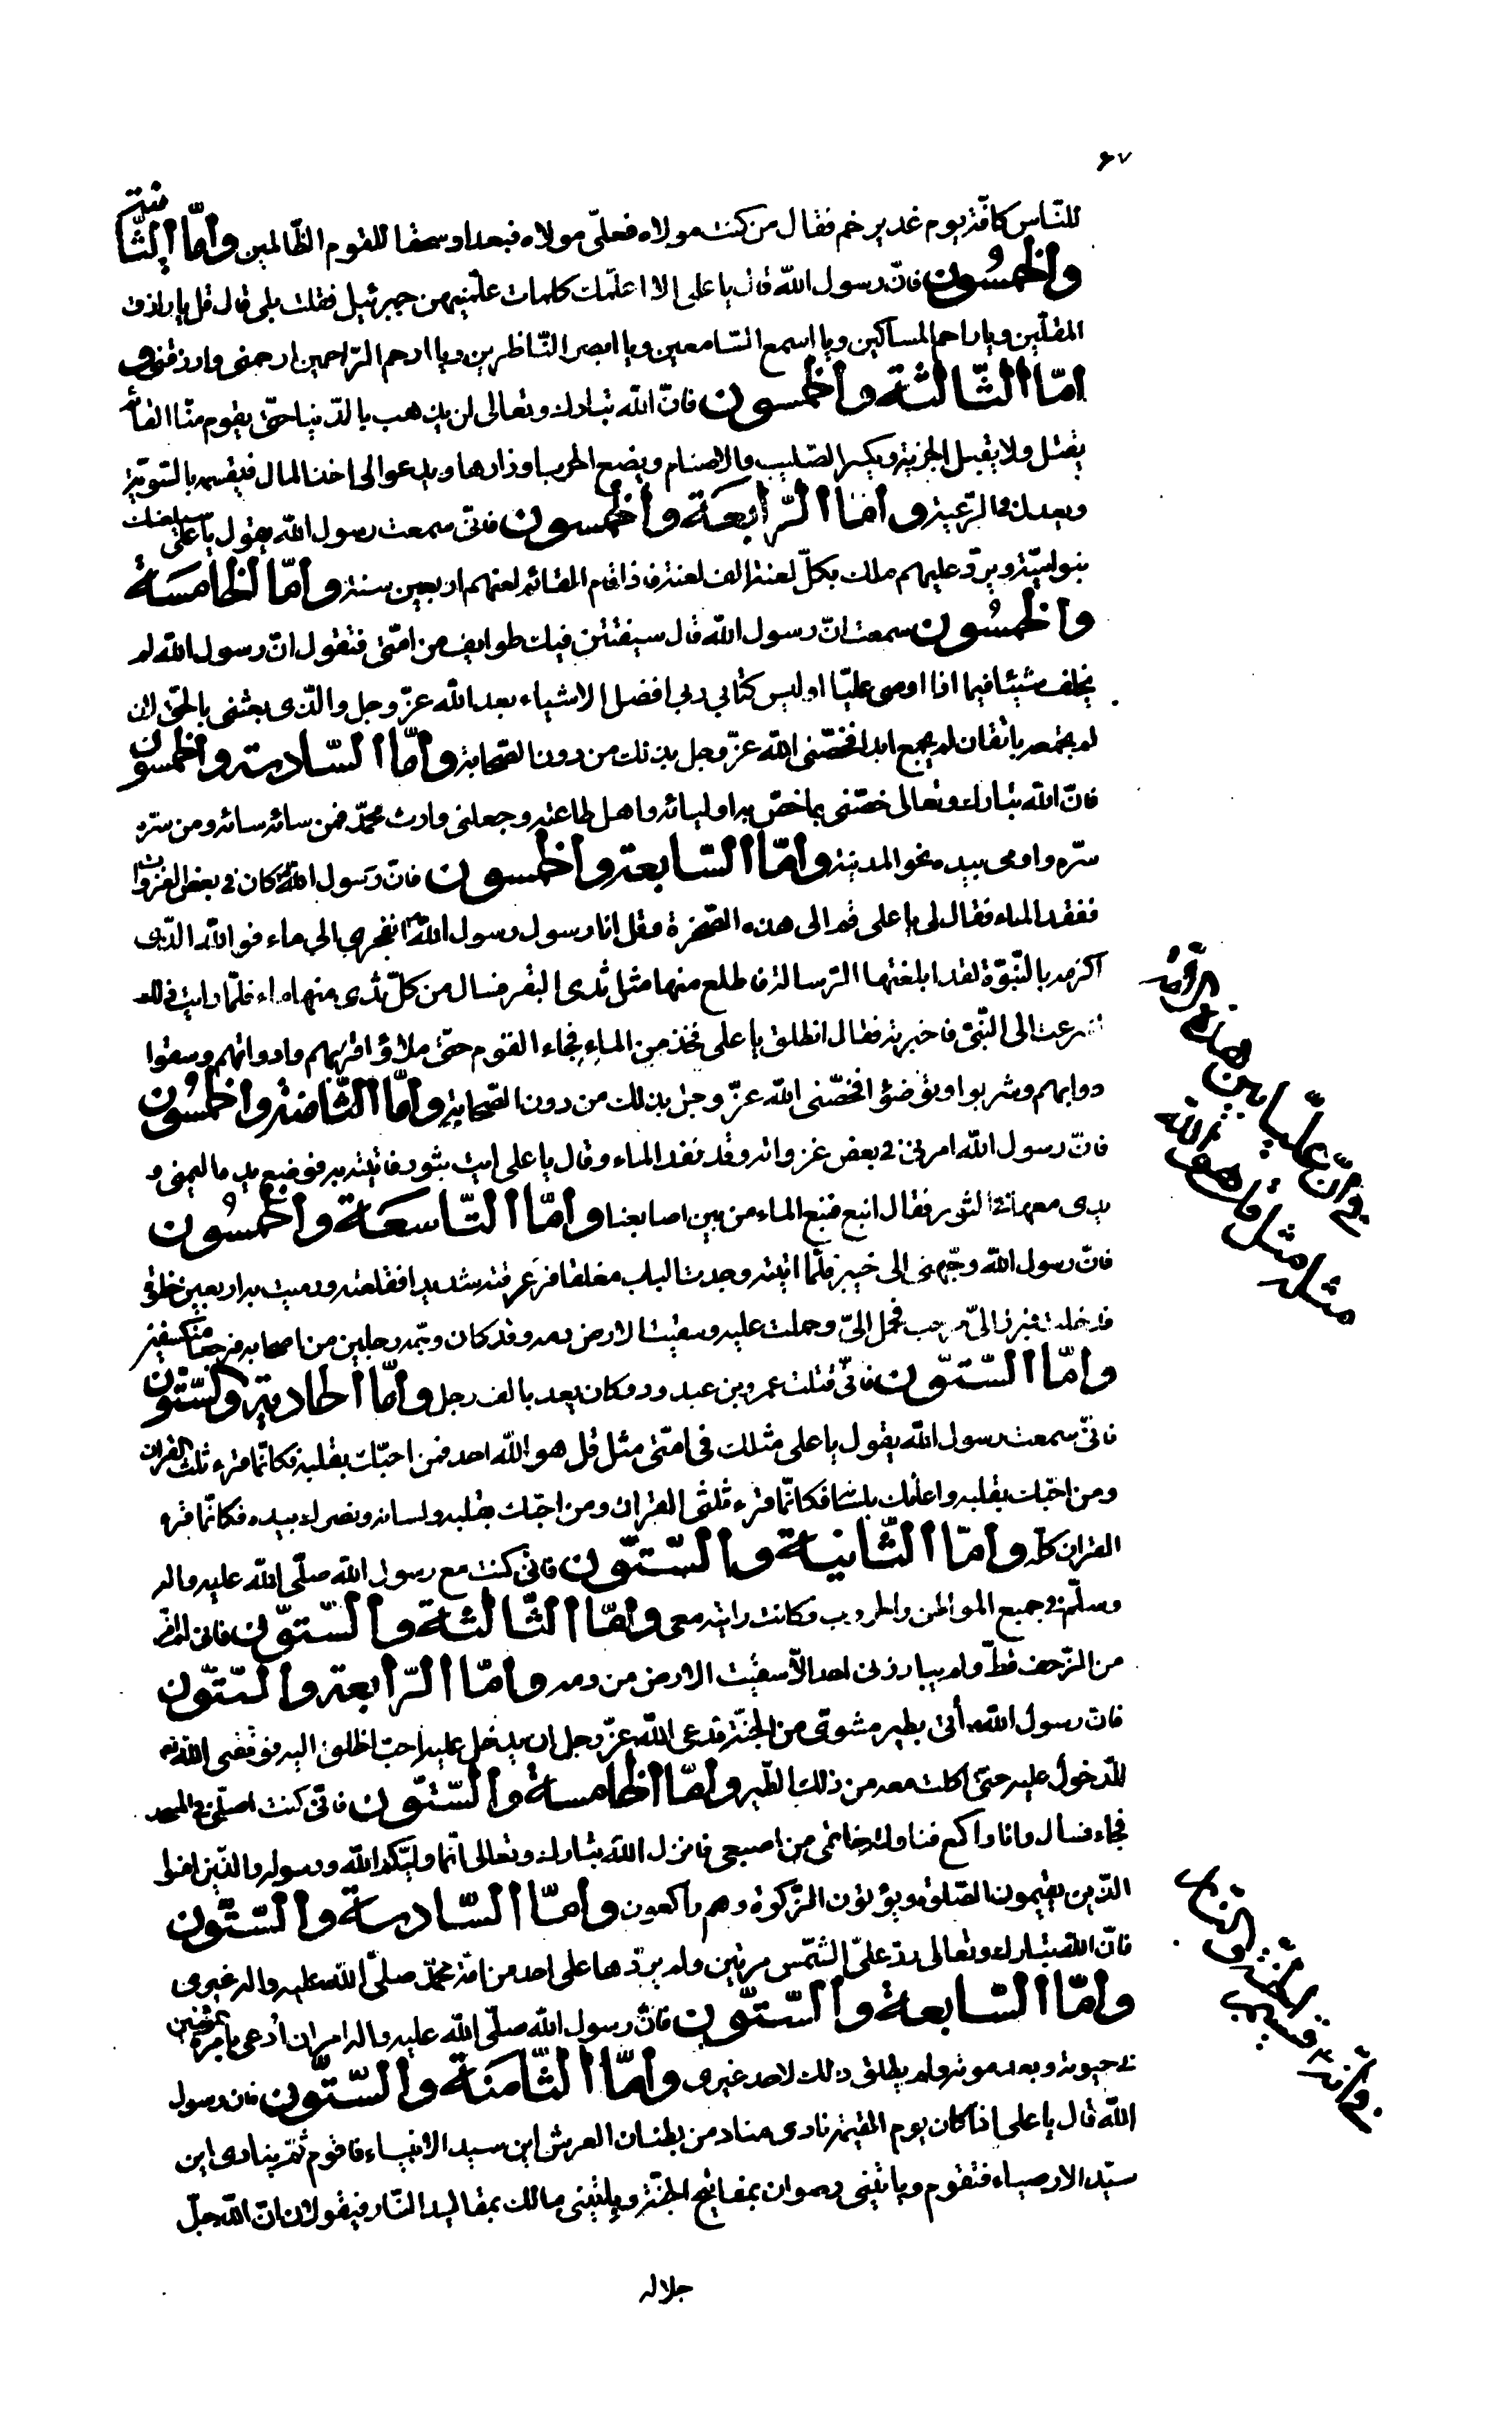 ٦٧
للنّاس كافّة يوم غدير خم فقال من كنت مولاه فعلىّ مولاه فبعدا وسحقا للقوم الظّالمين وامّا الثّانية
والخمسون فانّ رسول الله قال يا على الا اعلّمك كلمات علّمنيهن جبرئيل فقلت بلى قال قل يا رازق
المقلّين ويا راحم المساكين ويا اسمع السّامعين ويا ابصر النّاظرين ويا ارحم الرّاحمين ارحمنى وارزقنى و
امّا الثّالثة والخمسون فانّ الله تبارك وتعالى لن يذهب بالدّنيا حتّى يقوم منّا القائم
يقتل ولا يقبل الجزية ويكسر الصّليب والاصنام ويضع الحرب اوزارها ويدعو الى اخذ المال فيقسمه بالسّويّة
ويعدل فى الرّعيّة وامّا الرّابعة والخمسون فانّى سمعت رسول الله يقول يا على سيلعنك
بنو اميّة ويردّ عليهم ملك بكلّ لعنة الف لعنة فاذا قام القائم لعنهم اربعين سنة وامّا الخامسة
والخمسون سمعت انّ رسول الله قال سيفتتن فيك طوايف من امّتى فتقول انّ رسول الله لم
يخلف شيئا فبما اذا اوصى عليّا اوليس كتاب ربى افضل الاشياء بعد الله عزّ وجل والّذى بعثنى بالحقّ لئن
لم تجمعه باتقان لم يجمع ابدا فخصّنى الله عزّ وجل بذلك من دون الصّحابة وامّا السّادسة والخمسون
فانّ الله تبارك وتعالى خصّنى بما خصّ به اوليائه واهل طاعته وجعلنى وارث محمّد فمن سائه سائه ومن سرّه
سرّه واومى بيده نحو المدينة وامّا السّابعة والخمسون فانّ رسول الله كان فى بعض الغزوات
ففقد الماء فقال لى يا على قم الى هذه الصّخرة وقل انا رسول رسول الله انفجرى الى ماء فو الله الّذى
اكرمه بالنّبوّة لقد ابلغتها الرّسالة فاطلع منها مثل ثدى البقر فسال من كلّ ثدى منها ماء فلمّا رايت ذلك
اسرعت الى النّبىّ فاخبرته فقال انطلق يا على فخذ من الماء فجاء القوم حتّى ملاؤا قربهم وادواتهم وسقوا
دوابهم وشربوا وتوضؤا فخصّنى الله عزّ وجل بذلك من دون الصّحابة وامّا الثّامنة والخمسون
فانّ رسول الله امرنى فى بعض غزواته وقد نفد الماء وقال يا على ايت بتور فاتيته به فوضع يده اليمنى و
يدى معها فى التور فقال انبع فنبع الماء من بين اصابعنا وامّا التّاسعة والخمسون
فانّ رسول الله وجّهنى الى خيبر فلمّا اتيته وجدت الباب مغلقا فزعزعته شديدا فقلعته ورميت به اربعين خطوة
فدخلت فبرز الىّ مرحب فحمل الىّ وحملت عليه وسقيت الارض دمه وقد كان وجّه رجلين من اصحابه فرجعا منكسفين
وامّا السّتّون فانّى قتلت عمرو بن عبد ود وكان يعد بالف رجل وامّا الحادية والسّتّون
فانّى سمعت رسول الله يقول يا على مثلك فى امّتى مثل قل هو الله احد فمن احبّك بقلبه فكانّما قرء ثلث القران
ومن احبّك بقلبه واعانك بلسانه فكانّما قرء ثلثى القران ومن احبّك بقلبه ولسانه ونصرك بيده فكانّما قرء
القران كلّه وامّا الثّانية والسّتّون فانّى كنت مع رسول الله صلّى الله عليه واله
وسلّم فى جميع المواطن والحروب وكانت رايته معى وامّا الثّالثة والسّتّون فانى لم افر
من الزّحف قطّ ولم يبارزنى احد الاّ سقيت الارض من دمه وامّا الرّابعة والسّتّون
فانّ رسول الله أتى بطير مشوى من الجنّة فدعى الله عزّ وجل ان يدخل عليه احبّ الخلق اليه فوفّقنى الله
للدّخول عليه حتّى اكلت معه من ذلك الطّير وامّا الخامسة والسّتّون فانّى كنت اصلّى فى المسجد
فجاء فسال وانا راكع فناولته خاتمى من اصبعى فانزل الله تبارك وتعالى انّما وليّكم الله ورسوله والّذين امنوا
الّذين يقيمون الصّلوة ويؤتون الزّكوة وهم راكعون وامّا السّادسة والسّتّون
فانّ الله تبارك وتعالى ردّ علىّ الشّمس مرتين ولم يردّها على احد من امّة محمّد صلّى الله عليه واله غيرى
وامّا السّابعة والسّتّون فانّ رسول الله صلّى الله عليه واله امر ان أدعى بامرة المؤمنين
فى حيوته وبعد موته ولم يطلق ذلك لاحد غيرى وامّا الثّامنة والسّتّون فان رسول
الله قال يا على اذا كان يوم القيمة نادى مناد من بطنان العرش اين سيد الانبياء فاقوم ثمّ ينادى اين
سيّد الاوصياء فتقوم وياتينى رضوان بمفاتيح الجنّة وياتينى مالك بمقاليد النّار فيقولان انّ الله جلّ
جلاله
فى انّ عليّا بين هذه الامّة
مثله مثل قل هو الله
فى انّه قسيم الجنّة والنار